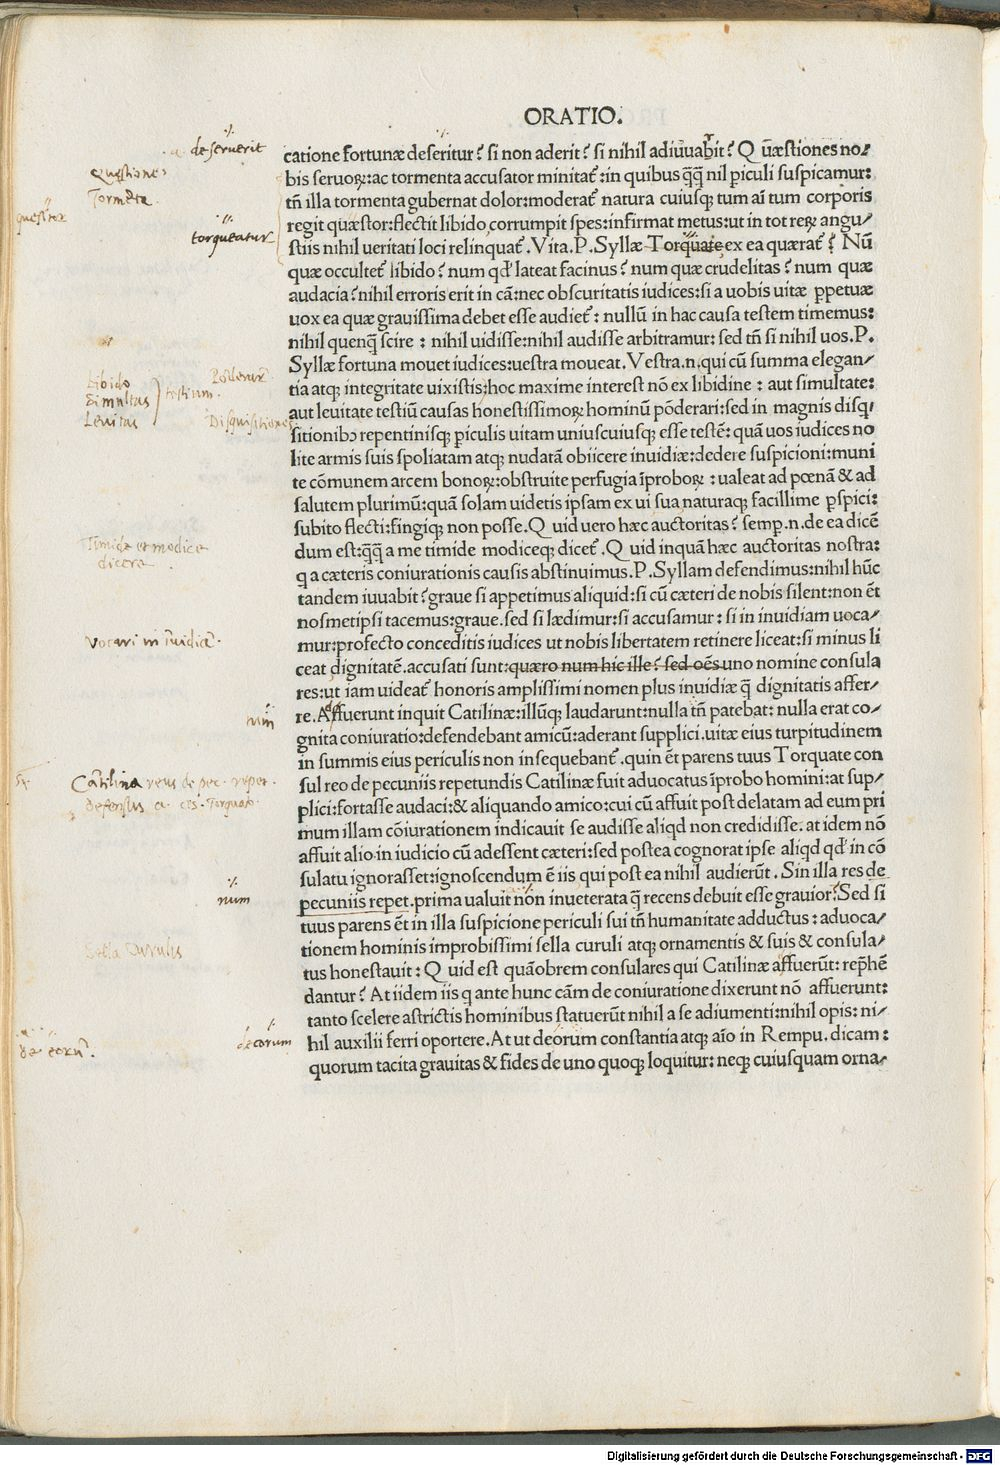 ORATIO.
catione fortunæ deseritur? si non aderit? si nihil adiuuabit? Quæstiones no/
bis seruoꝝ:ac tormenta accusator minitat᷑:in quibus q̄q̄ nil ꝑiculi suspicamur:
tn̄ illa tormenta gubernat dolor:moderat᷑ natura cuiusqꝫ tum ai tum corporis
regit quæstor:flectit libido,corrumpit spes:infirmat metus:ut in tot reꝝ angu/
stiis nihil ueritati loci relinquat᷑. Vita.P.Syllæ Torquate ex ea quærat᷑? Nū
quæ occultet᷑ libido? num qd' lateat facinus? num quæ crudelitas? num quæ
audacia? nihil erroris erit in cā:nec obscuritatis iudices:si a uobis uitæ ꝑpetuæ
uox ea quæ grauissima debet esse audiet᷑: nullū in hac causa testem timemus:
nihil quenq̄ scire : nihil uidisse:nihil audisse arbitramur: sed tn̄ si nihil uos.P.
Syllæ fortuna mouet iudices:uestra moueat. Vestra.n.qui cū summa elegan/
tia atqꝫ integritate uixistis:hoc maxime interest nō ex libidine : aut simultate:
aut leuitate testiū causas honestissimoꝝ hominū pōderari:sed in magnis disq/
sitionibꝰ repentinisqꝫ ꝑiculis uitam uniuscuiusqꝫ esse testē: quā uos iudices no
lite armis suis spoliatam atqꝫ nudatā obiicere inuidiæ:dedere suspicioni:muni
te cōmunem arcem bonoꝝ:obstruite perfugia īproboꝝ : ualeat ad pœnā & ad
salutem plurimū:quā solam uidetis ipsam ex ui sua naturaqꝫ facillime ꝑspici:
subito flecti:fingiqꝫ non posse. Quid uero hæc auctoritas? semꝑ.n.de ea dicē
dum est:q̄q̄ a me timide modiceqꝫ dicet᷑. Quid inquā hæc auctoritas nostra:
q a cæteris coniurationis causis abstinuimus.P.Syllam defendimus:nihil hūc
tandem iuuabit? graue si appetimus aliquid:si cū cæteri de nobis silent:non ēt
nosmetipsi tacemus:graue.sed si lædimur:si accusamur : si in inuidiam uoca/
mur:profecto conceditis iudices ut nobis libertatem retinere liceat:si minus li
ceat dignitatē.accusati sunt:quæro num hic ille? sed oēs uno nomine consula
res:ut iam uideat᷑ honoris amplissimi nomen plus inuidiæ q̄ dignitatis affer/
re.Affuerunt inquit Catilinæ:illūqꝫ laudarunt:nulla tn̄ patebat: nulla erat co/
gnita coniuratio:defendebant amicū:aderant supplici.uitæ eius turpitudinem
in summis eius periculis non insequebant᷑.quin ēt parens tuus Torquate con
sul reo de pecuniis repetundis Catilinæ fuit aduocatus īprobo homini:at sup/
plici:fortasse audaci:& aliquando amico:cui cū affuit post delatam ad eum pri
mum illam cōiurationem indicauit se audisse aliqd non credidisse. at idem nō
affuit alio in iudicio cū adessent cæteri:sed postea cognorat ipse aliqd qd' in cō
sulatu ignorasset:ignoscendum ē iis qui post ea nihil audierūt . Sin illa res de
pecuniis repet.prima ualuit nōn inueterata q̄ recens debuit esse grauior? Sed si
tuus parens ēt in illa suspicione periculi sui tn̄ humanitate adductus : aduoca/
tionem hominis improbissimi sella curuli atqꝫ ornamentis & suis & consula/
tus honestauit : Quid est quāobrem consulares qui Catilinæ affuerūt: rep̄hē
dantur? At iidem iis q ante hunc cām de coniuratione dixerunt nō affuerunt:
tanto scelere astrictis hominibus statuerūt nihil a se adiumenti:nihil opis: ni/
hil auxilii ferri oportere.At ut deorum constantia atqꝫ aīo in Rempu. dicam :
quorum tacita grauitas & fides de uno quoqꝫ loquitur: neqꝫ cuiusquam orna/
deseruerit
Quęstiones
Tormēta.
quęstor
torqueatur
Libido
Simultas
Leuitas
testium.
Disquisitiones
Timide et modice
dicere
Vocari in īuidiā.
Catilina reus de pec. repet.
defensus a cōs. Torquato
num
Sella Curulis
decorum
Digitalisierung gefördert durch die Deutsche Forschungsgemeinschaft - DFG